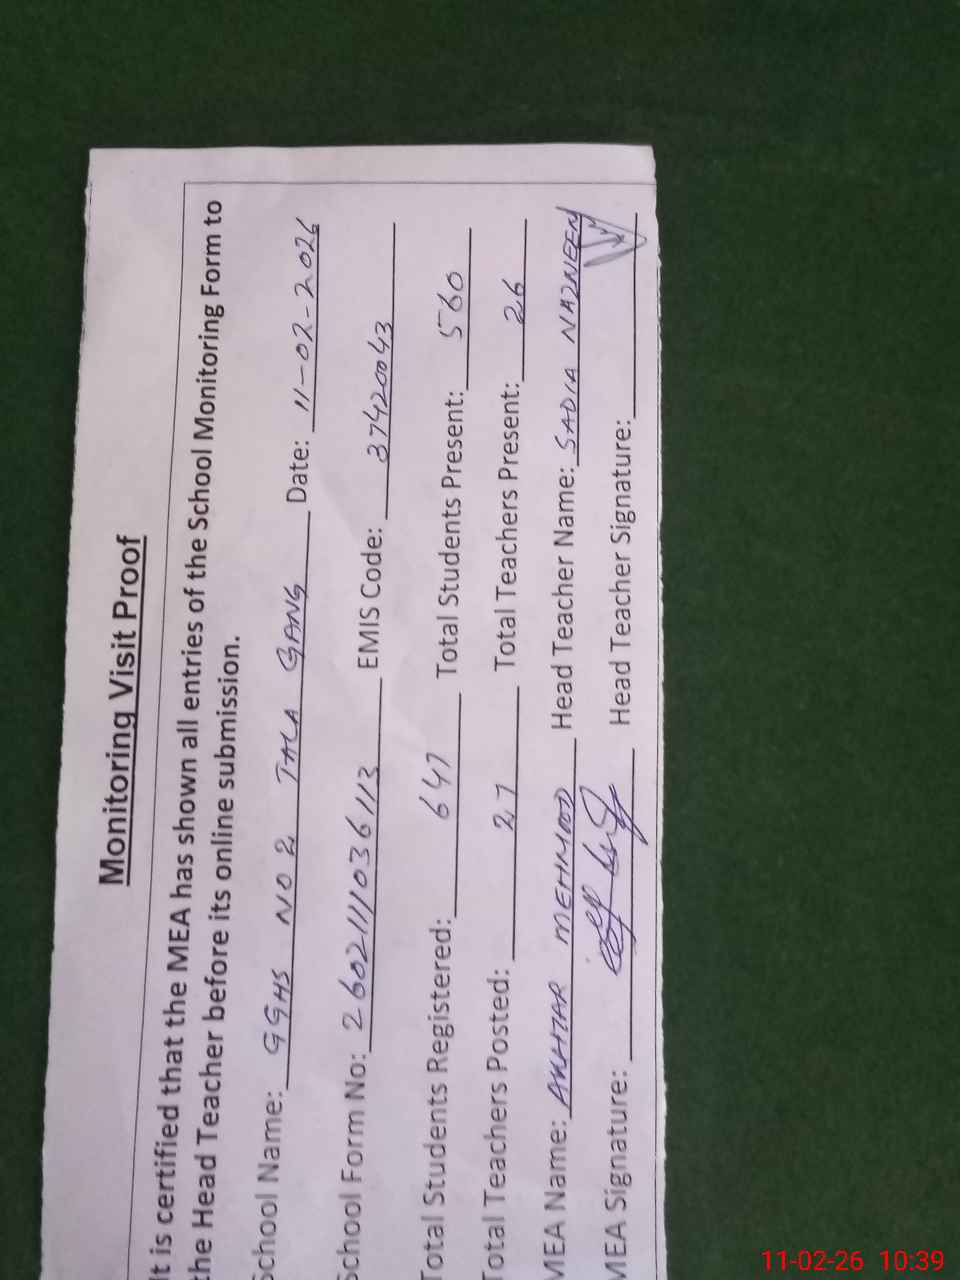 Monitoring Visit Proof
It is certified that the MEA has shown all entries of the School Monitoring Form to
the Head Teacher before its online submission.
School Name: GGHS NO 2 TALA GANG Date: 11-02-2026
School Form No: 26021111036113 EMIS Code: 37420043
Total Students Registered: 647 Total Students Present: 560
Total Teachers Posted: 27 Total Teachers Present: 26
MEA Name: AKHTAR MEHMOOD Head Teacher Name: SADIA NAZNEEN
MEA Signature: Head Teacher Signature:
11-02-26 10:39